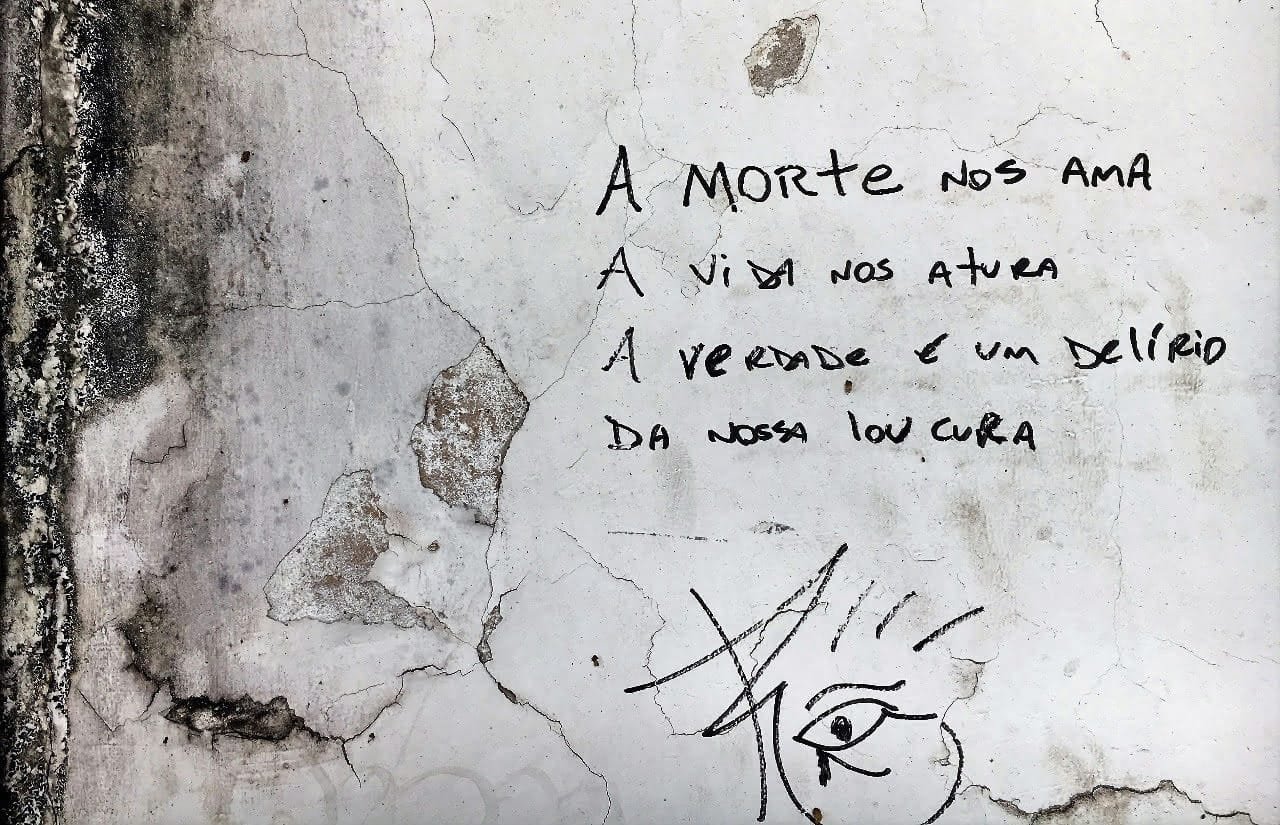 A MORTE NOS AMA
A VIDA NOS ATURA
A VERDADE É UM DELÍRIO
DA NOSSA LOUCURA